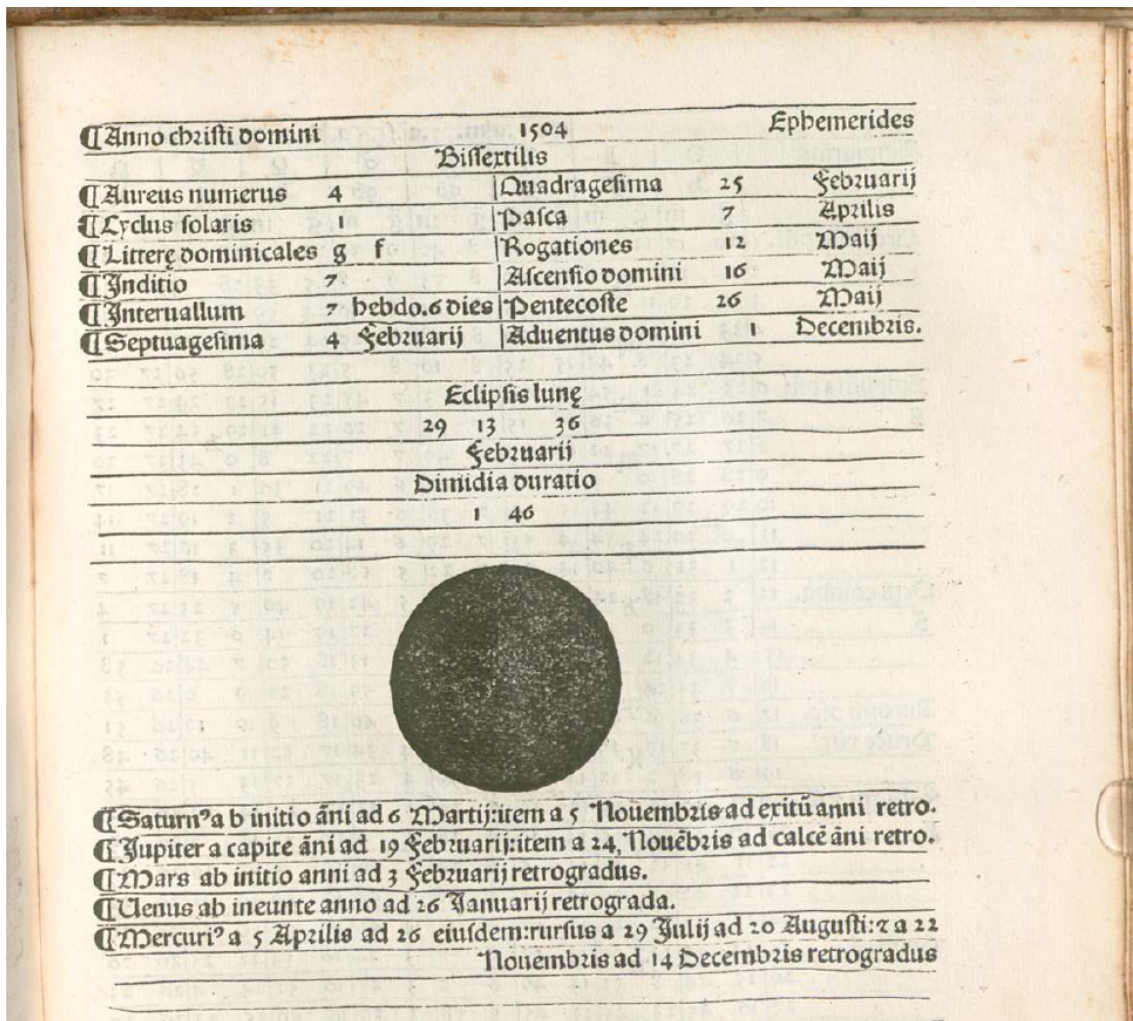 ¶Anno christi domini 1504 Ephemerides
Bissextilis
¶Aureus numerus 4 Quadragesima 25 Februarij
¶Cyclus solaris 1 Pasca 7 Aprilis
¶Litterę dominicales g f Rogationes 12 Maij
¶Inditio 7 Ascensio domini 16 Maij
¶Interuallum 7 hebdo.6 dies Pentecoste 26 Maij
¶Septuagesima 4 Februarij Aduentus domini 1 Decembris.
Eclipsis lunę
29 13 36
Februarij
Dimidia duratio
1 46
¶Saturnꝰ a b initio āni ad 6 Martij:item a 5 Nouembris ad exitū anni retro.
¶Jupiter a capite āni ad 19 Februarij:item a 24, Nouēbris ad calcē āni retro.
¶Mars ab initio anni ad 3 Februarij retrogradus.
¶Uenus ab ineunte anno ad 26 Januarij retrograda.
¶Mercuriꝰ a 5 Aprilis ad 26 eiusdem:rursus a 29 Julij ad 20 Augusti:⁊ a 22
Nouembris ad 14 Decembris retrogradus